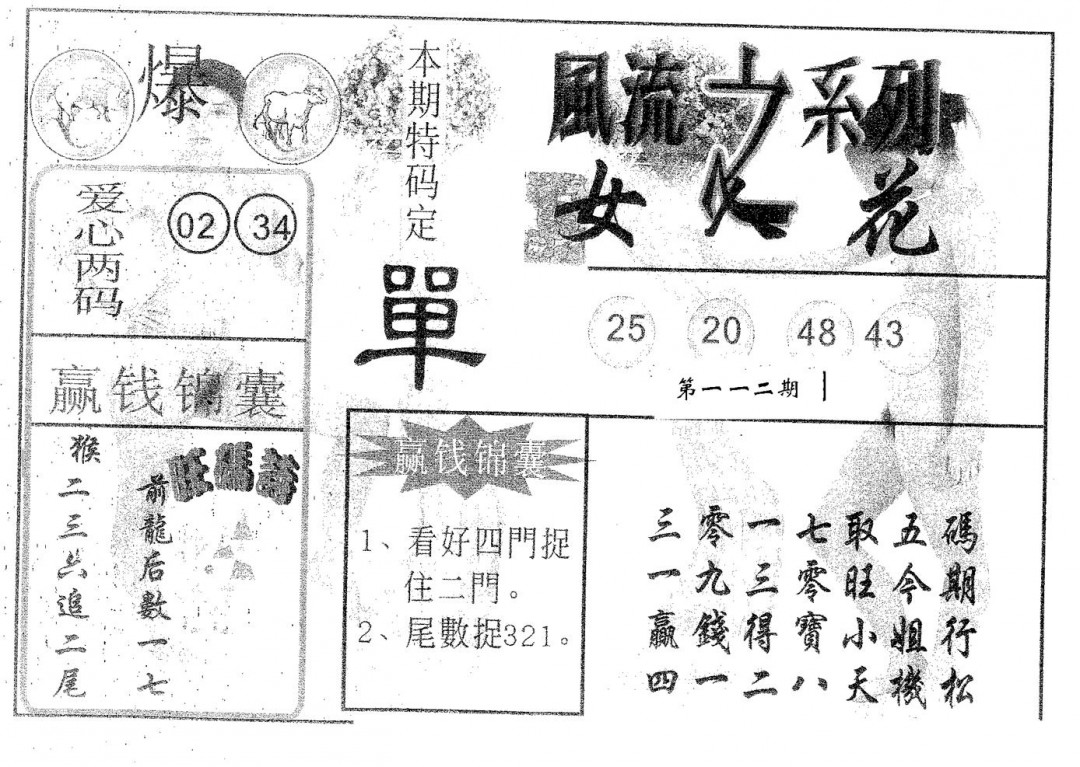 爆
爱心两码
02 34
赢钱锦囊
旺碼詩
前龍后數一七
猴二三六追二尾
本期特码定
單
赢钱锦囊
1、看好四門捉
住二門。
2、尾數捉321。
風流之系列
女人花
25 20 48 43
第一一二期
碼期行松
五今姐機
取旺小天
七零寶八
一三得二
零九錢一
三一贏四